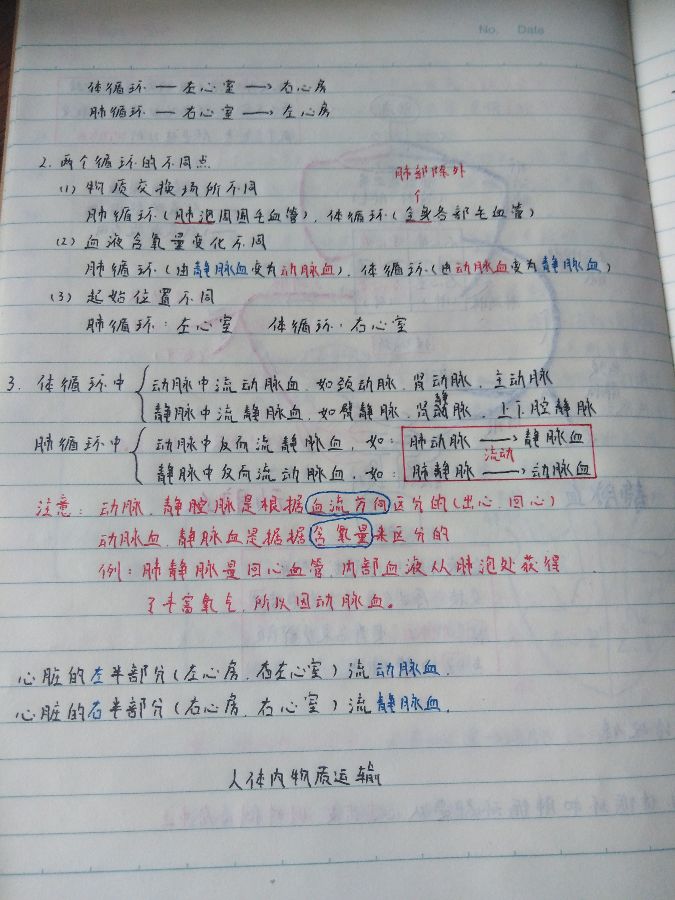 No. Date
体循环 — 左心室 → 右心房
肺循环 — 右心室 → 左心房
2. 两个循环的不同点
(1) 物质交换场所不同
肺部除外
↑
肺循环(肺泡周围毛血管), 体循环(全身各部毛血管)
(2) 血液含氧量变化不同
肺循环(由静脉血变为动脉血), 体循环(由动脉血变为静脉血)
(3) 起始位置不同
肺循环: 左心室 体循环: 右心室
3. 体循环中 { 动脉中流动脉血, 如颈动脉, 肾动脉, 主动脉
静脉中流静脉血, 如臂静脉, 肾静脉, 上下腔静脉
肺循环中 { 动脉中反而流静脉血, 如: 肺动脉 → 静脉血
流动
静脉中反而流动脉血, 如: 肺静脉 → 动脉血
注意: 动脉, 静脉是根据血流方向区分的(出心, 回心)
动脉血, 静脉血是据据含氧量来区分的
例: 肺静脉是回心血管, 内部血液从肺泡处获得
了丰富氧气, 所以因动脉血。
心脏的左半部分(左心房, 左心室)流动脉血.
心脏的右半部分(右心房, 右心室)流静脉血.
人体内物质运输